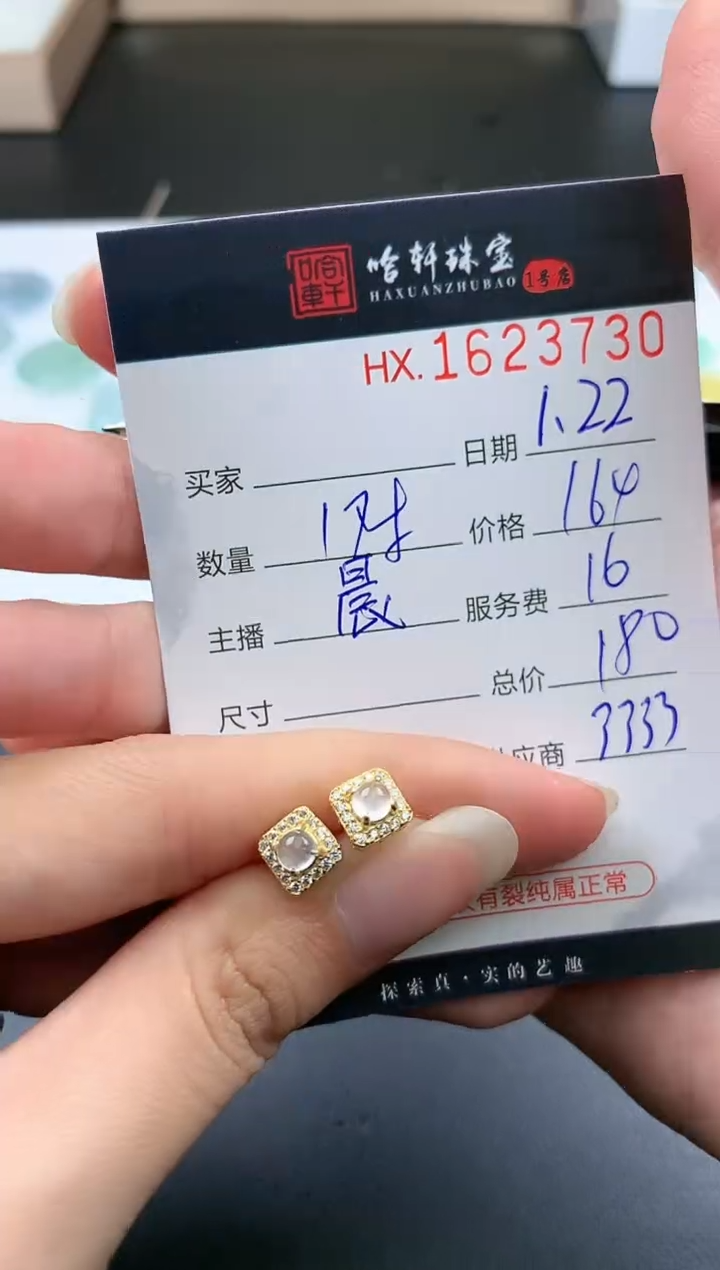 哈轩珠宝
HAXUANZHUBAO 1号店
HX.1623730
买家 日期 1.22
数量 1对 价格 164
主播 晨 服务费 16
尺寸 总价 180
应商 3333
有裂纯属正常
探索真·实的艺趣